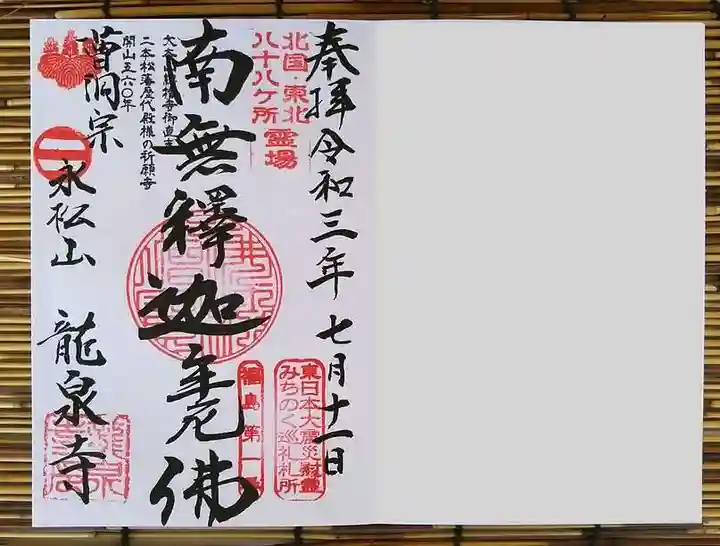 奉拝 令和三年 七月十一日
北国・東北
八十八ヶ所
霊場
東日本大震災慰霊
みちのく巡礼札所
南無釋迦牟尼佛
福島第一
二本松藩歴代殿様の祈願寺
開山五六〇年
曹洞宗
永松山 龍泉寺